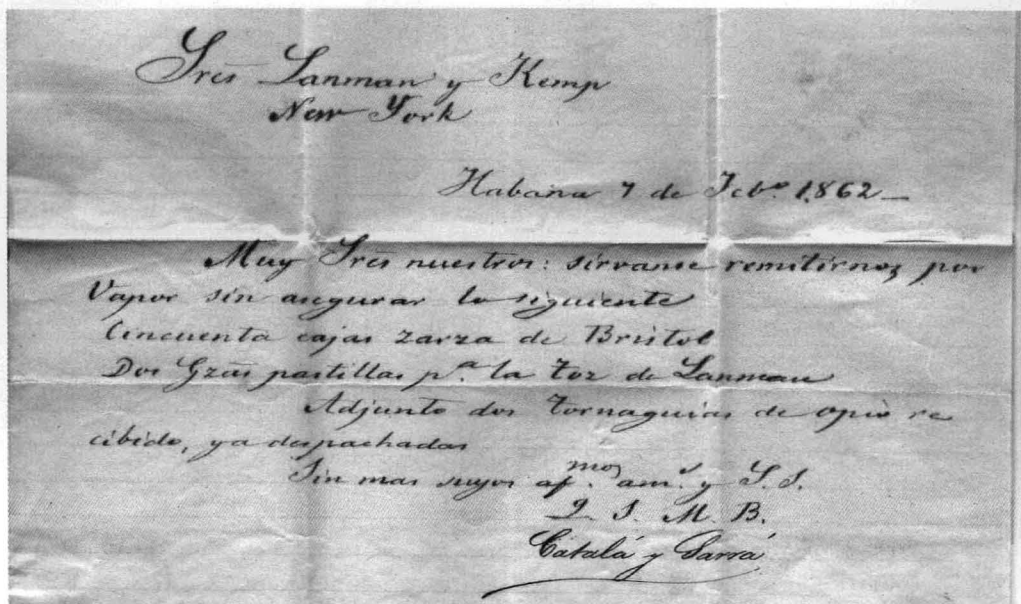 Sres Lanman y Kemp
New York
Habana 7 de Febº 1862_
Muy Sres nuestros: sirvanse remitirnos por
Vapor sin asegurar lo siguiente
Cincuenta cajas zarza de Bristol
Dos Gzas pastillas pª la Toz de Lanman
Adjunto dos Tornaguias de opio re
cibido, ya despachadas
Sin mas suyos af.mos am.s y S. S.
Q. S. M. B.
Catalá y Sarrá